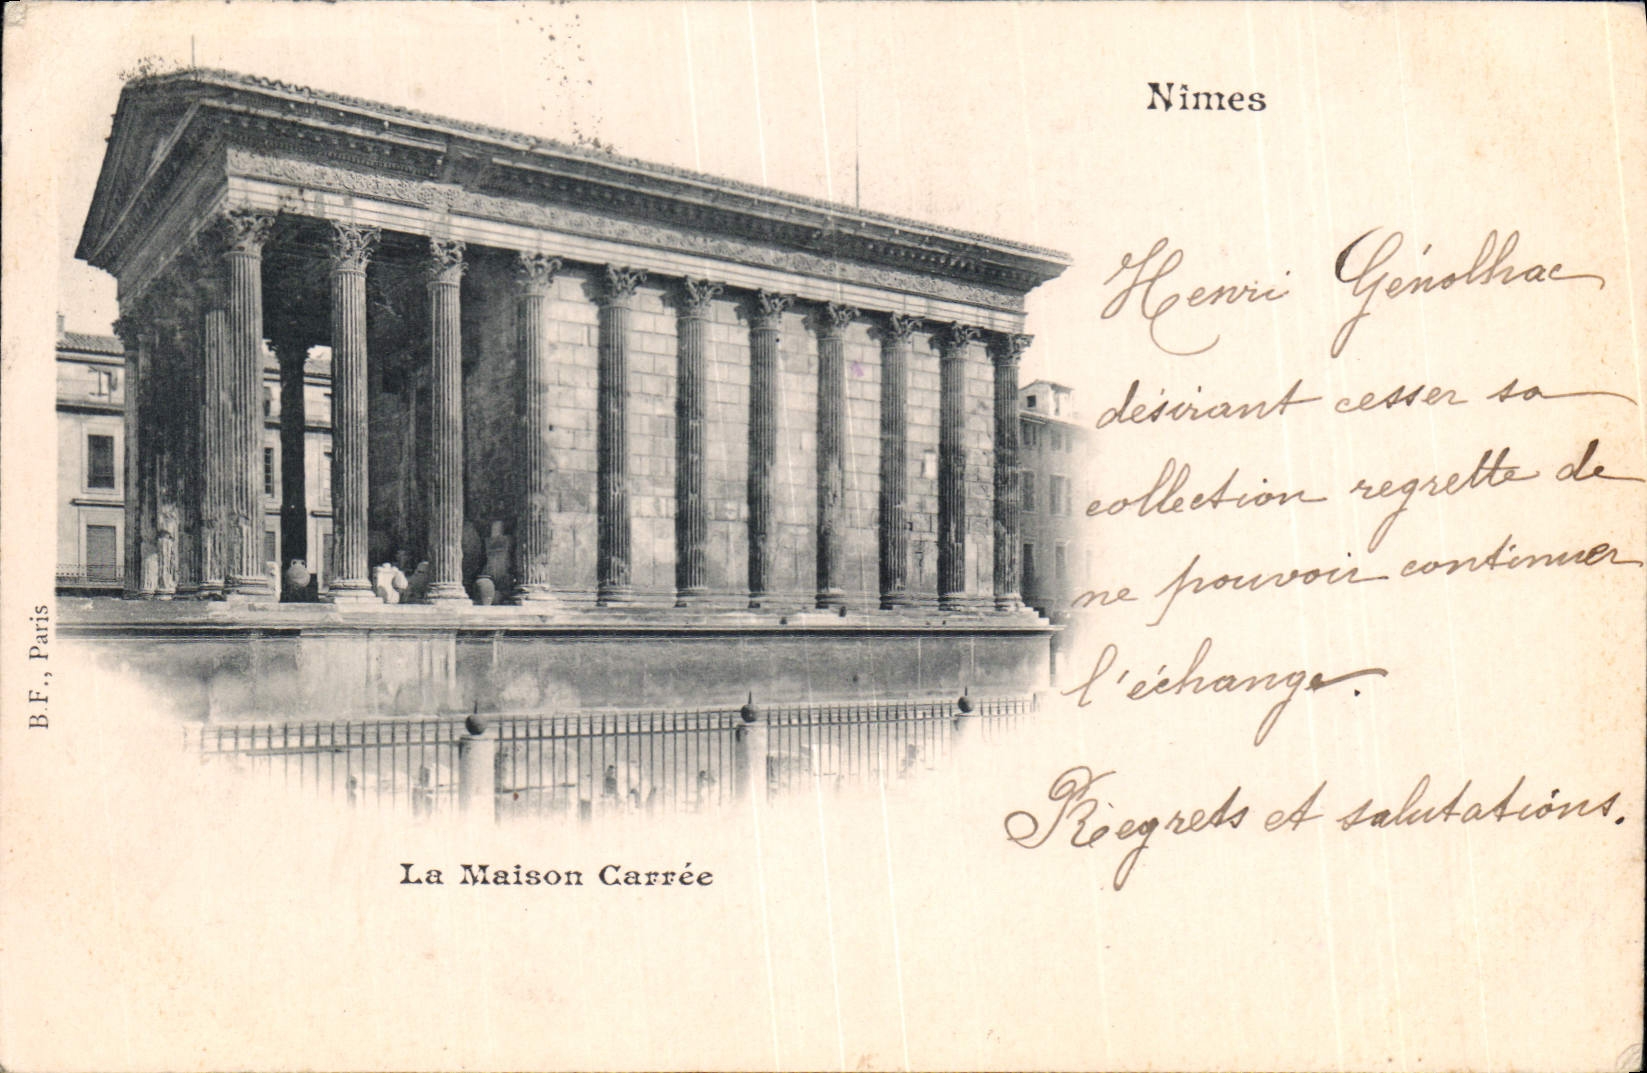 Nîmes
Henri Génolhac
désirant cesser sa
collection regrette de
ne pouvoir continuer
l'échange.
Regrets et salutations.
B.F., Paris
La Maison Carrée